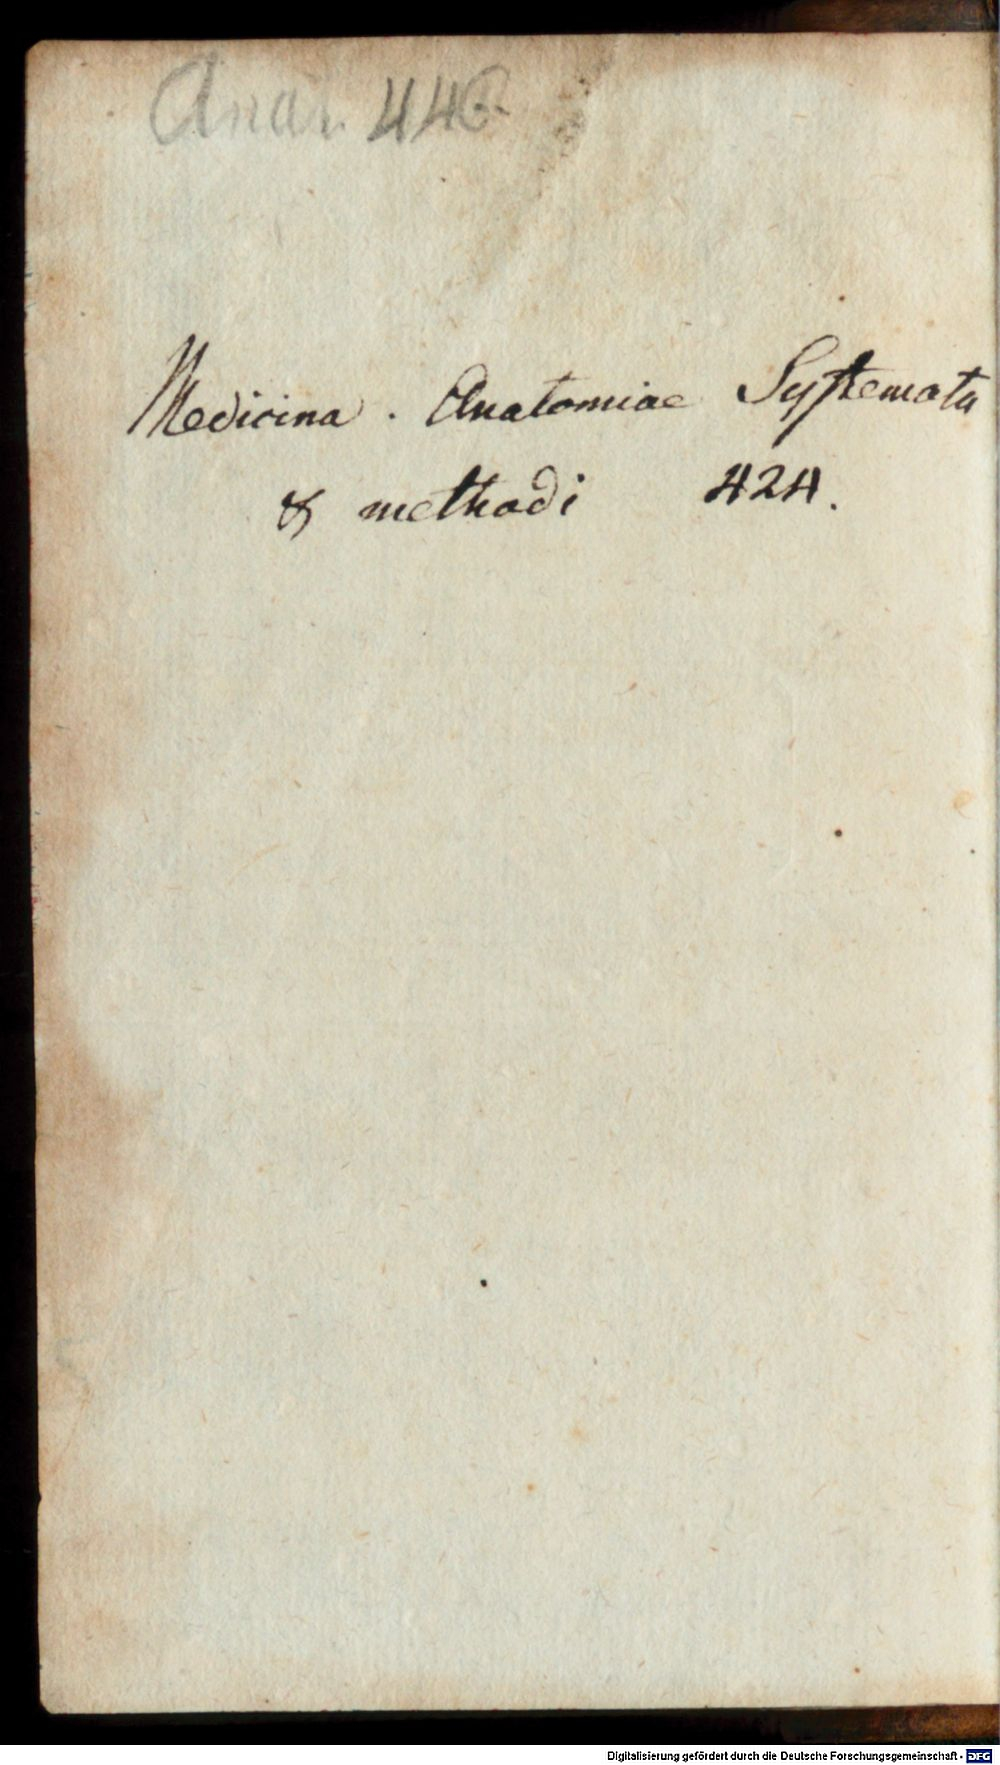 Anat. 446.
Medicina. Anatomiae Systemata
& methodi 424.
Digitalisierung gefördert durch die Deutsche Forschungsgemeinschaft - DFG